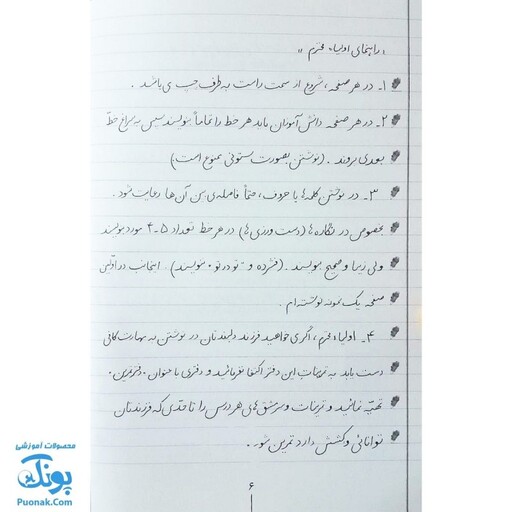 « راهنمای اولیاء محترم »
۱- در هر صفحه، شروع از سمت راست به طرف چپ می باشد.
۲- در هر صفحه دانش آموزان باید هر خط را تماماً بنویسند سپس به سراغ خط
بعدی بروند. (نوشتن بصورت ستونی ممنوع است)
۳- در نوشتن کلمه ها یا حروف، حتماً فاصله ی بین آن ها رعایت شود.
بخصوص در نگاره ها (دست ورزی ها) در هر خط تعداد ۵-۴ مورد بنویسند
ولی زیبا و صحیح بنویسند. (فشرده و تو در تو ننویسند). اینجانب در اوّلین
صفحه یک نمونه نوشته ام.
۴- اولیاء محترم، اگر می خواهید فرزند دلبندتان در نوشتن به مهارت کافی
دست یابد به تمرینات این دفتر اکتفا نفرمائید و دفتری با عنوان «دفتر تمرین»
تهیّه نمائید و تمرینات و سرمشق های هر درس را تا حدّی که فرزندتان
توانائی و کشش دارد تمرین شود.
۶
محصولات آموزشی
پونک
Puonak.Com